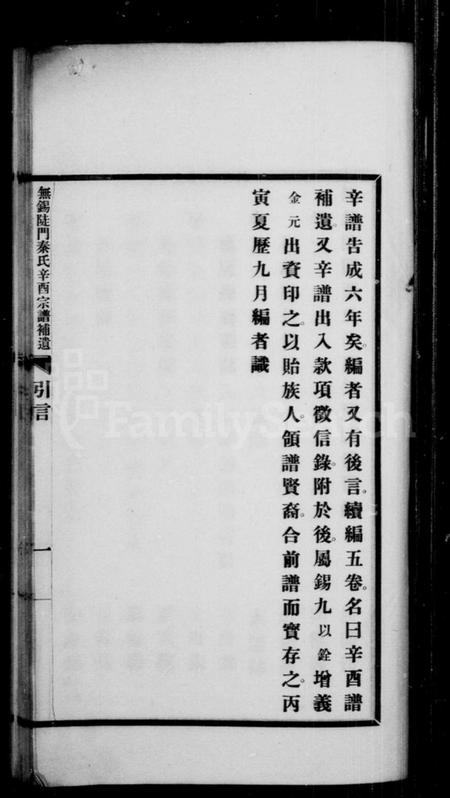 辛譜告成六年矣。編者又有後言。續編五卷。名曰辛酉譜
補遺。又辛譜出入款項徵信錄。附於後。屬錫九以銓增義
金元出資印之。以貽族人。領譜賢裔。合前譜而寶存之。丙
寅夏歷九月編者識
無錫陡門秦氏辛酉宗譜補遺
引言
一
FamilySearch